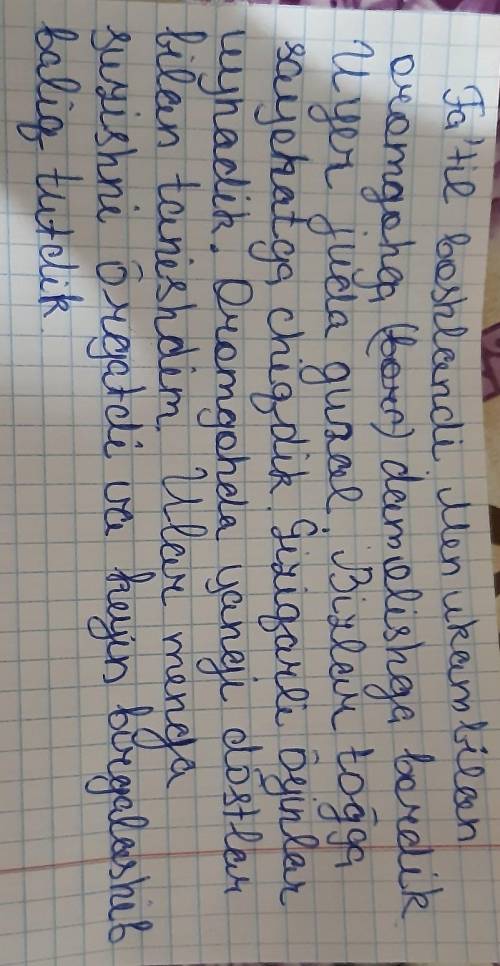 Ta'til boshlandi. Men ukam bilan
oromgohga (bora) damolishga bordik.
U yer juda guzal. Bizlar tōgga
sayohatga chiqdik. Qiziqarli ōyinlar
uynadik. Oromgohda yangi dōstlar
bilan tanishdim. Ular menga
suzishni ōrgatdi va keyin birgalashib
baliq tutdik